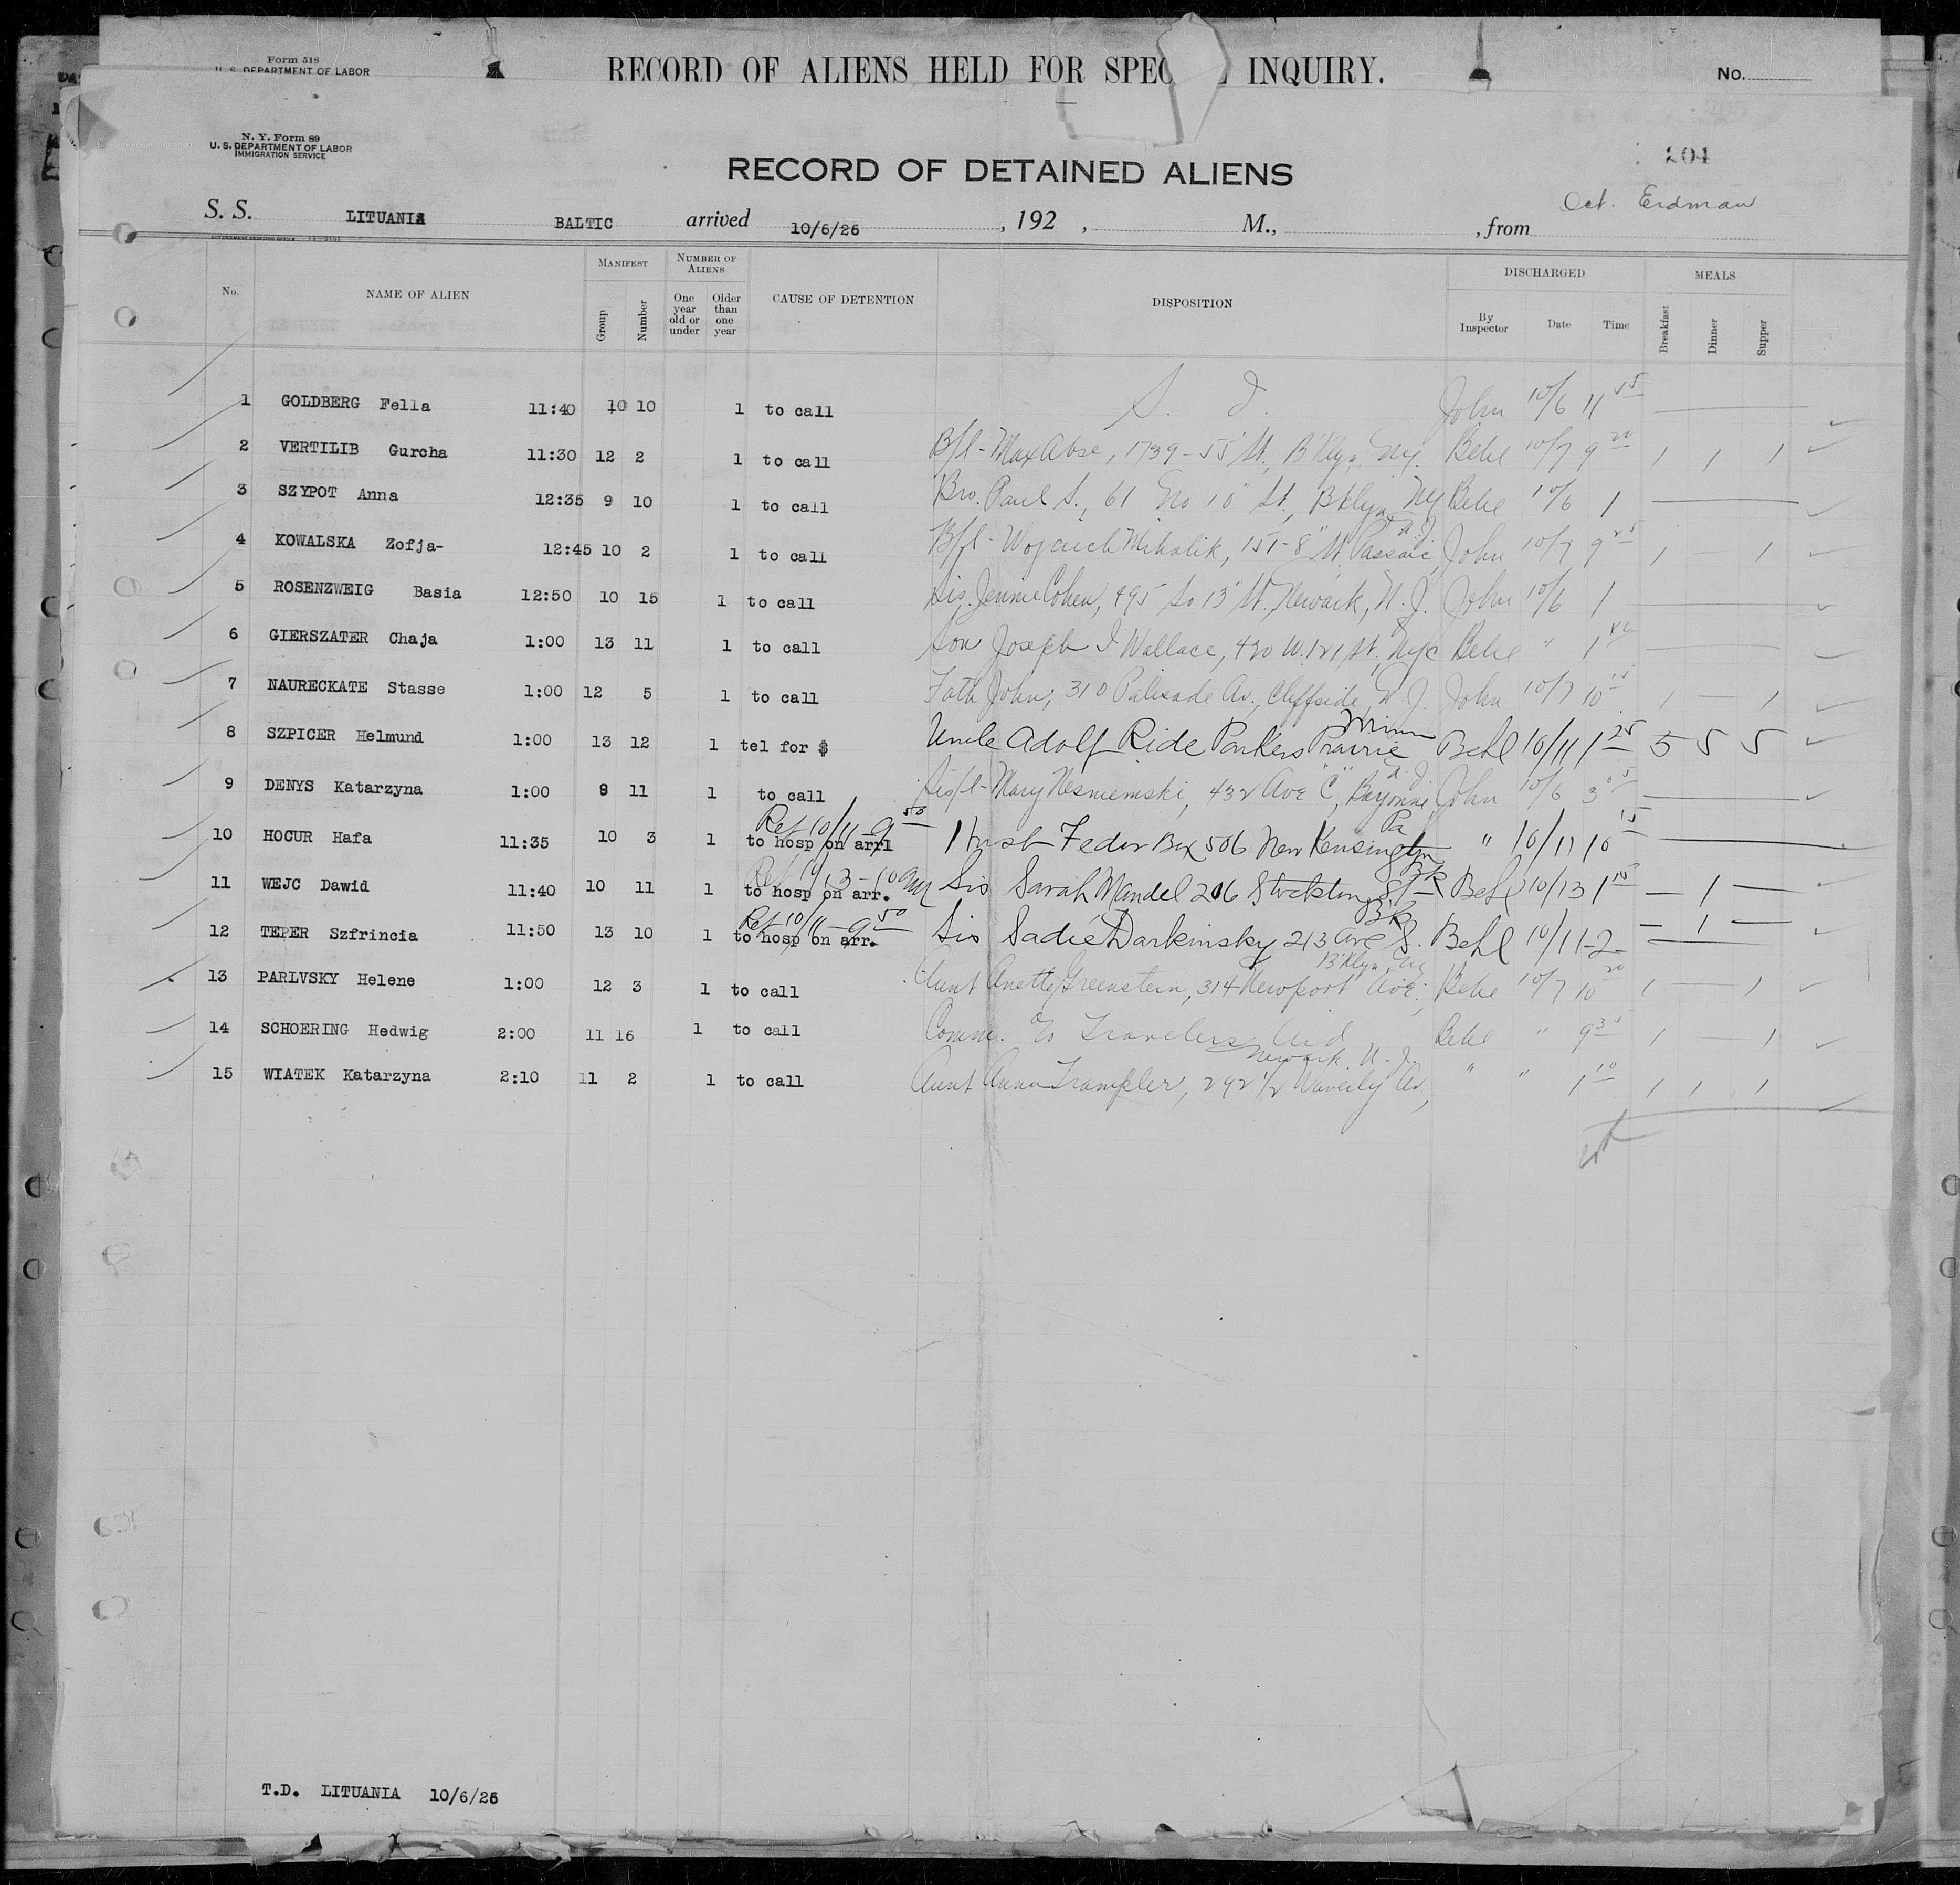 Form 518
U. S. DEPARTMENT OF LABOR
RECORD OF ALIENS HELD FOR SPEC INQUIRY.
No.
N. Y. Form 89
U. S. DEPARTMENT OF LABOR
IMMIGRATION SERVICE
204
RECORD OF DETAINED ALIENS
Oct. Erdman
S. S. LITUANIA BALTIC arrived 10/6/26, 192 , M., , from
No. NAME OF ALIEN MANIFEST Group Number NUMBER OF ALIENS One year old or under Older than one year CAUSE OF DETENTION DISPOSITION DISCHARGED By Inspector Date Time MEALS Breakfast Dinner Supper
1 GOLDBERG Fella 11:40 10 10 1 to call S. I. John 10/6 11 55
2 VERTILIB Gurcha 11:30 12 2 1 to call B/l - Max Abse, 1739 - 55" St., B'Klyn, Ny. Behl 10/7 9 20 1 1 1
3 SZYPOT Anna 12:35 9 10 1 to call Bro. Paul S., 61 No 10" St., Bklyn, Ny Behl 10/6 1
4 KOWALSKA Zofja- 12:45 10 2 1 to call B/l - Wojciech Mihalik, 151-8" St. Passaic, N.J. John 10/7 9 25 1 — 1
5 ROSENZWEIG Basia 12:50 10 15 1 to call Sis. Jennie Cohen, 495 So 13" St., Newark, N. J. John 10/6 1
6 GIERSZATER Chaja 1:00 13 11 1 to call Son Joseph I Wallace, 420 W. 121 St., Nyc Behl " 1
7 NAURECKATE Stasse 1:00 12 5 1 to call Fath John, 310 Palisade Av., Cliffside, N. J. John 10/7 10 15 1 — 1
8 SZPICER Helmund 1:00 13 12 1 tel for $ Uncle Adolf Ride Parkers Prairie Minn Behl 10/11 1 25 5 5 5
9 DENYS Katarzyna 1:00 9 11 1 to call Sis/l - Mary Nesniemski, 432 Ave "C", Bayonne, N.J. John 10/6 3 05
10 HOCUR Hafa 11:35 10 3 1 to hosp on arrl Rel 10/11 - 9 50 Husb Feder Box 506 New Kensington Pa " 10/11 10 15
11 WEJC Dawid 11:40 10 11 1 to hosp on arr. Rel 10/13 - 10 am Sis Sarah Mandel 206 Stockton St Bk Behl 10/13 1 10 — 1 —
12 TEPER Szfrincia 11:50 13 10 1 to hosp on arr. Rel 10/11 - 9 50 Sis Sadie Darkinsky 213 Ave S. Bk Behl 10/11 - 2 — 1 —
13 PARLVSKY Helene 1:00 12 3 1 to call Aunt Anette Greenstein, 314 Newport Ave., B'Klyn, Ny Behl 10/7 10 20 1 — 1
14 SCHOERING Hedwig 2:00 11 16 1 to call Comm. to Travelers Aid Behl " 9 35 1 — 1
15 WIATEK Katarzyna 2:10 11 2 1 to call Aunt Anna Trampler, 292 1/2 Waverly Av., Newark, N. J. " " 1 10 1 1 1
T.D. LITUANIA 10/6/26